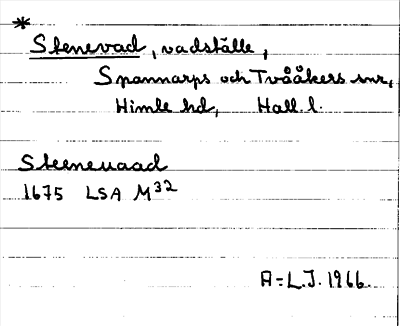 *
Stenevad, vadställe,
Spannarps och Tvååkers snr,
Himle hd, Hall. l.
Steeneuaad
1675 LSA M32
A=L.J. 1966.